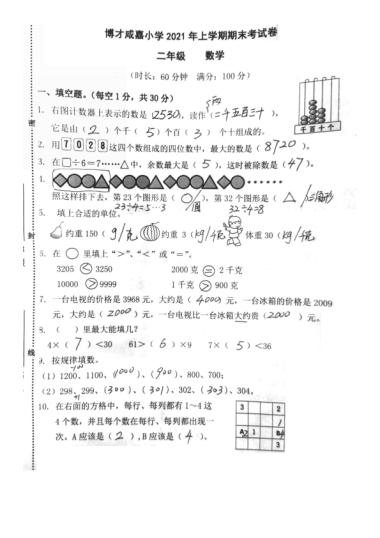 博才咸嘉小学2021年上学期期末考试卷
二年级 数学
（时长：60分钟 满分：100分）
一、填空题。（每空1分，共30分）
1. 右图计数器上表示的数是 2530，读作（二千五百三十），
它是由（2）个千（5）个百（3）个十组成的。
千 百 十 个
2. 用 7 0 2 8 这四个数组成的四位数中，最大的数是（8720）。
3. 在□÷6=7……△中，余数最大是（5），这时被除数是（47）。
4.
照这样排下去，第23个图形是（○），第32个图形是（△）
圆
23÷4=5…3 32÷4=8
5. 填上合适的单位。
约重150（g/克） 约重3（kg/千克） 体重30（kg/千克）
6. 在○里填上“>”、“<”或“=”。
3205 < 3250 2000克 = 2千克
10000 > 9999 1千克 > 900克
7. 一台电视的价格是3968元，大约是（4000）元，一台冰箱的价格是2009
元，大约是（2000）元，一台电视比一台冰箱大约贵（2000）元。
8. （ ）里最大能填几？
4×（7）<30 61>（6）×9 7×（5）<36
9. 按规律填数。
（1）1200、1100、（1000）、（900）、800、700；
（2）298、299、（300）、（301）、302、（303）、304。
10. 在右面的方格中，每行、每列都有1～4这
4个数，并且每个数在每行、每列都出现一
次。A应该是（2），B应该是（4）。
3 2
1
A2 1 B4
3
密
封
线